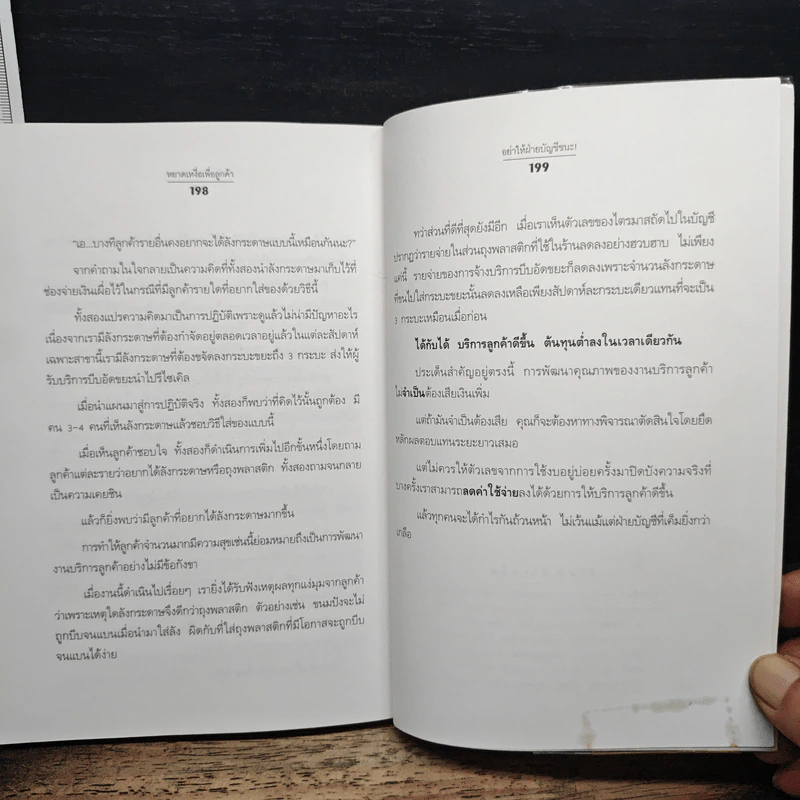 หยาดเหงื่อเพื่อลูกค้า
198
"เอ...บางทีลูกค้ารายอื่นคงอยากจะได้ลังกระดาษแบบนี้เหมือนกันนะ?"
จากคำถามในใจกลายเป็นความคิดที่ทั้งสองนำลังกระดาษมาเก็บไว้ที่
ช่องจ่ายเงินเผื่อไว้ในกรณีที่มีลูกค้ารายใดที่อยากใส่ของด้วยวิธีนี้
ทั้งสองแปรความคิดมาเป็นการปฏิบัติเพราะดูแล้วไม่น่ามีปัญหาอะไร
เนื่องจากเรามีลังกระดาษที่ต้องกำจัดอยู่ตลอดเวลาอยู่แล้วในแต่ละสัปดาห์
เฉพาะสาขานี้เรามีลังกระดาษที่ต้องขจัดลงกระบะขยะถึง 3 กระบะ ส่งให้ผู้
รับบริการบีบอัดขยะนำไปรีไซเคิล
เมื่อนำแผนมาสู่การปฏิบัติจริง ทั้งสองก็พบว่าที่คิดไว้นั้นถูกต้อง มี
คน 3-4 คนที่เห็นลังกระดาษแล้วชอบวิธีใส่ของแบบนี้
เมื่อเห็นลูกค้าชอบใจ ทั้งสองก็ดำเนินการเพิ่มไปอีกขั้นหนึ่งโดยถาม
ลูกค้าแต่ละรายว่าอยากได้ลังกระดาษหรือถุงพลาสติก ทั้งสองถามจนกลาย
เป็นความเคยชิน
แล้วก็ยิ่งพบว่ามีลูกค้าที่อยากได้ลังกระดาษมากขึ้น
การทำให้ลูกค้าจำนวนมากมีความสุขเช่นนี้ย่อมหมายถึงเป็นการพัฒนา
งานบริการลูกค้าอย่างไม่มีข้อกังขา
เมื่องานนี้ดำเนินไปเรื่อยๆ เรายิ่งได้รับฟังเหตุผลทุกแง่มุมจากลูกค้า
ว่าเพราะเหตุใดลังกระดาษจึงดีกว่าถุงพลาสติก ตัวอย่างเช่น ขนมปังจะไม่
ถูกบีบจนแบนเมื่อนำมาใส่ลัง ผิดกับที่ใส่ถุงพลาสติกที่มีโอกาสจะถูกบีบ
จนแบนได้ง่าย
อย่าให้ฝ่ายบัญชีชนะ!
199
ทว่าส่วนที่ดีที่สุดยังมีอีก เมื่อเราเห็นตัวเลขของไตรมาสถัดไปในบัญชี
ปรากฏว่ารายจ่ายในส่วนถุงพลาสติกที่ใช้ในร้านลดลงอย่างฮวบฮาบ ไม่เพียง
แค่นี้ รายจ่ายของการจ้างบริการบีบอัดขยะก็ลดลงเพราะจำนวนลังกระดาษ
ที่ขนไปใส่กระบะขยะนั้นลดลงเหลือเพียงสัปดาห์ละกระบะเดียวแทนที่จะเป็น
3 กระบะเหมือนเมื่อก่อน
ได้กับได้ บริการลูกค้าดีขึ้น ต้นทุนต่ำลงในเวลาเดียวกัน
ประเด็นสำคัญอยู่ตรงนี้ การพัฒนาคุณภาพของงานบริการลูกค้า
ไม่จำเป็นต้องเสียเงินเพิ่ม
แต่ถ้ามันจำเป็นต้องเสีย คุณก็จะต้องหาทางพิจารณาตัดสินใจโดยยึด
หลักผลตอบแทนระยะยาวเสมอ
แต่ไม่ควรให้ตัวเลขจากการใช้งบอยู่บ่อยครั้งมาปิดบังความจริงที่
บางครั้งเราสามารถลดค่าใช้จ่ายลงได้ด้วยการให้บริการลูกค้าดีขึ้น
แล้วทุกคนจะได้กำไรกันถ้วนหน้า ไม่เว้นแม้แต่ฝ่ายบัญชีที่เค็มยิ่งกว่า
เกลือ